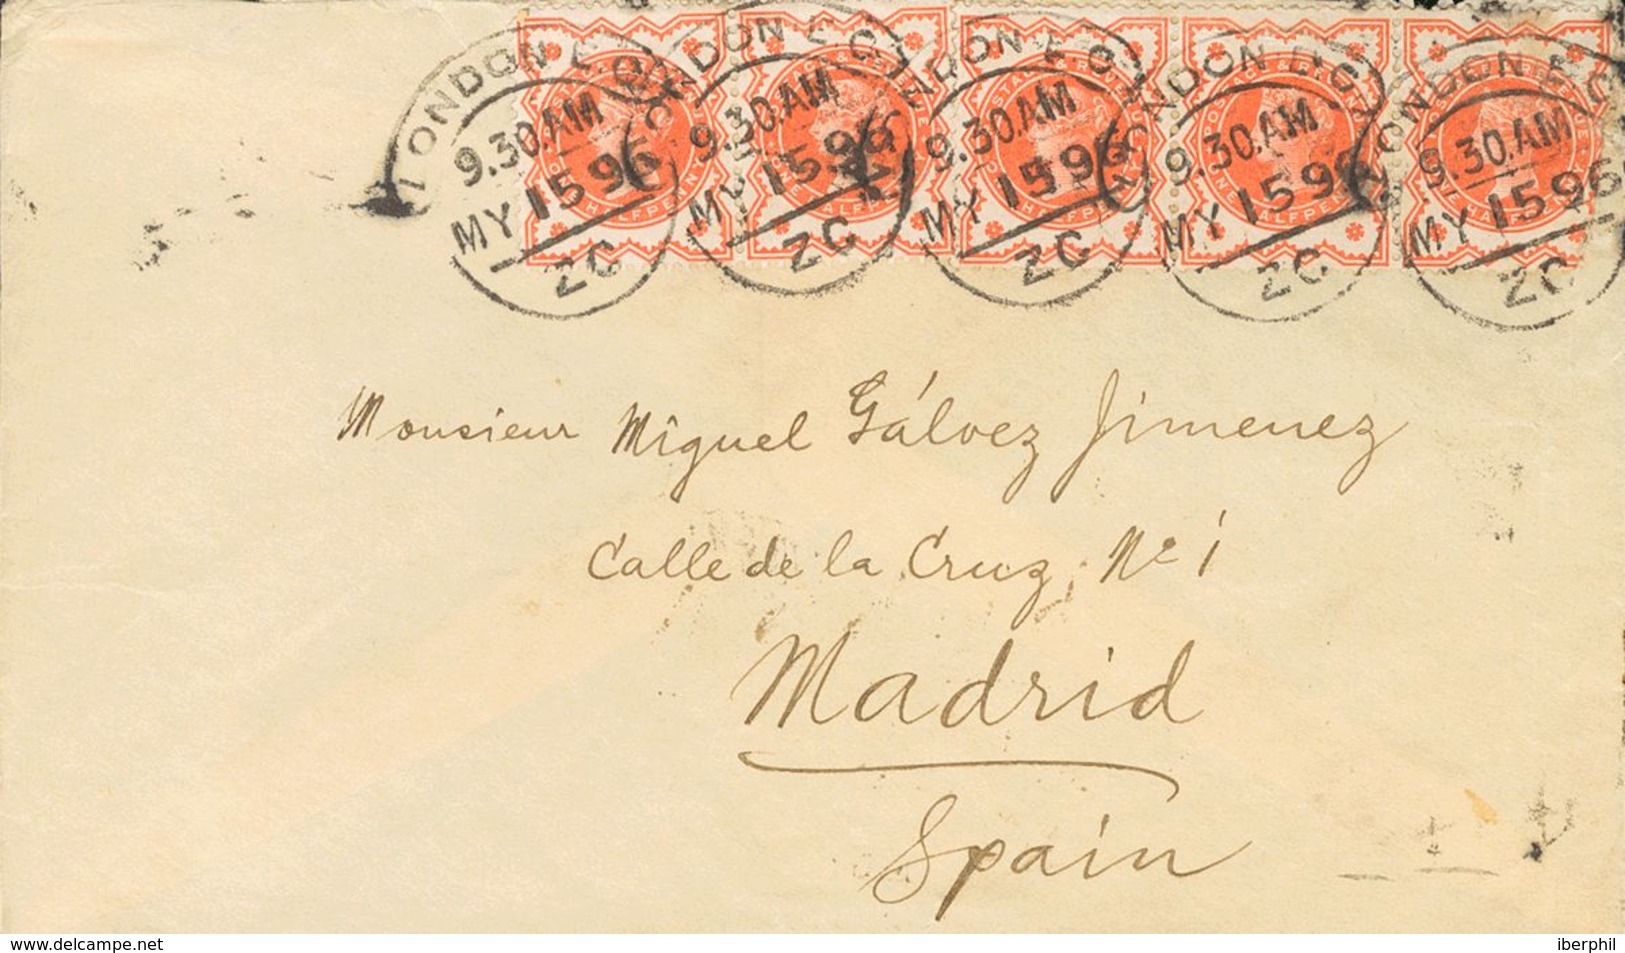 LONDON E.C LONDON E.C LONDON E.C LONDON E.C LONDON E.C
9.30.AM 9.30.AM 9.30.AM 9.30.AM 9.30.AM
MY 15 96 MY 15 96 MY 15 96 MY 15 96 MY 15 96
ZC ZC ZC ZC ZC
Monsieur Miguel Gálvez Jimenez
Calle de la Cruz, Nº 1
Madrid
Spain
www.delcampe.net
iberphil